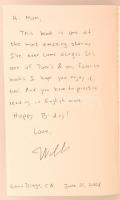 Hi Mom,
This book is one of
the most amazing stories
I've ever come across. It's
one of Tom's & my favorite
books. I hope you enjoy it,
too! And you have to practice
reading in English more.
Happy B-day!
Love,
Will
San Diego, CA June 01, 2008